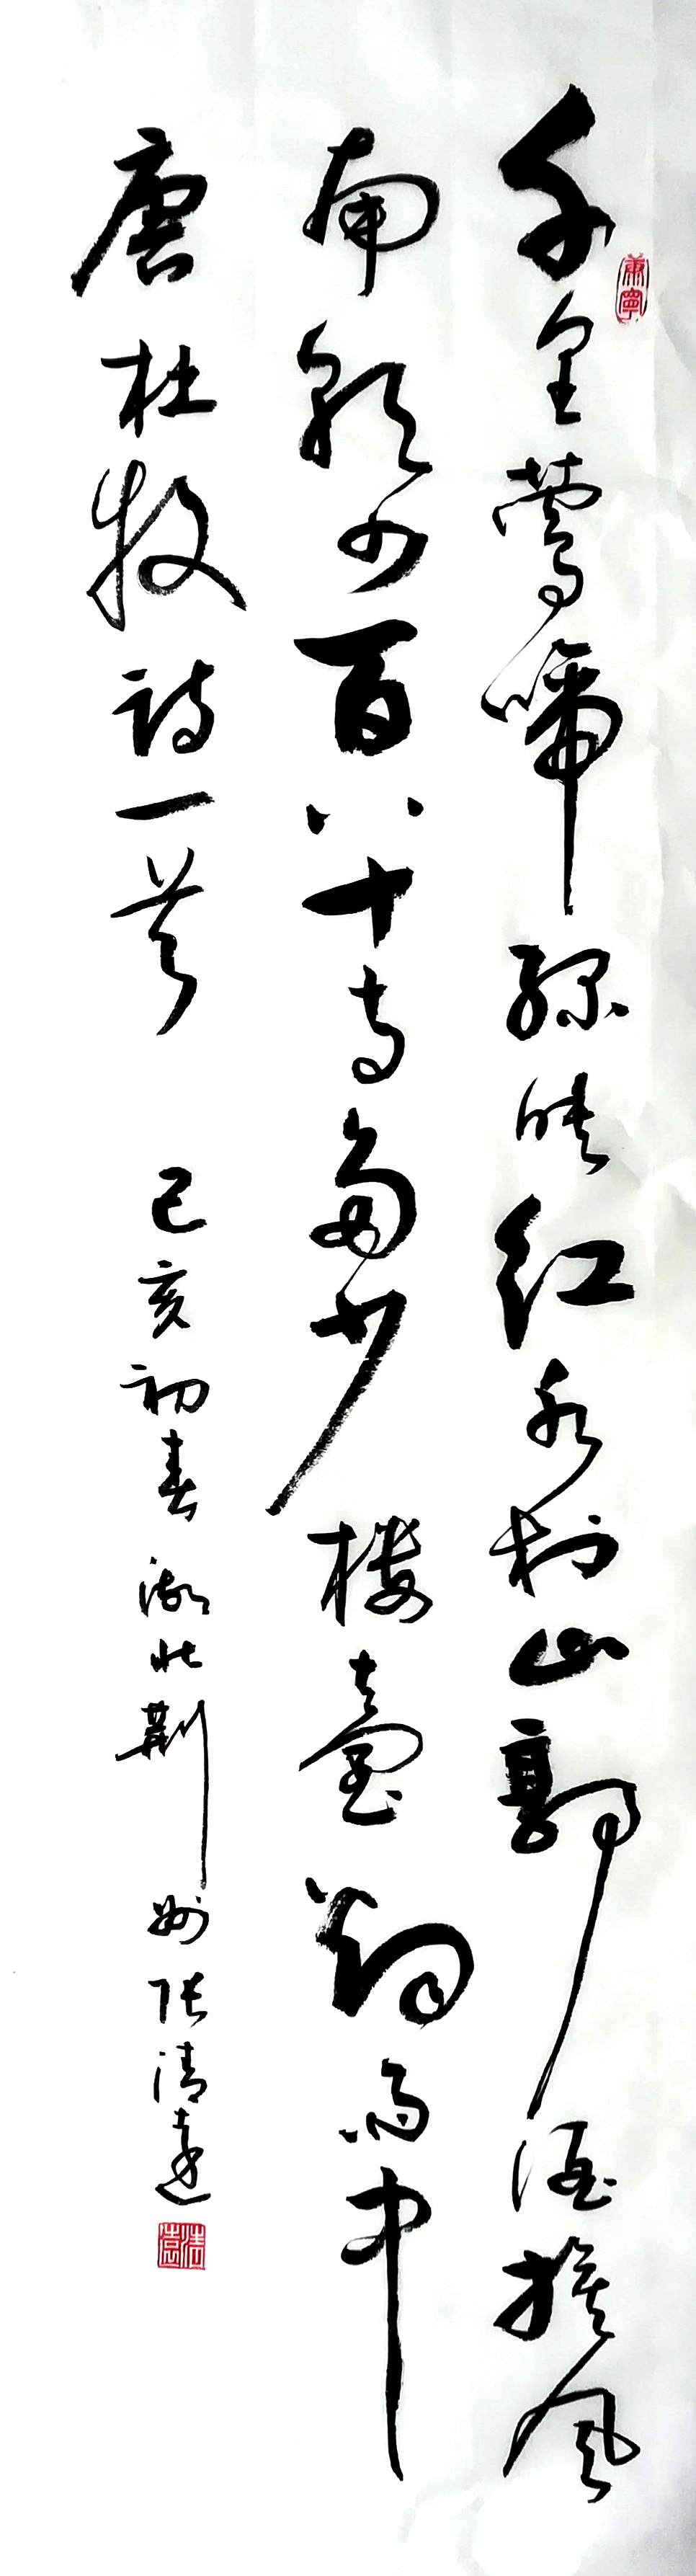 千里莺啼绿映红水村山郭酒旗风
南朝四百八十寺多少楼臺烟雨中
唐杜牧诗一首 己亥初春湖北荆州张清遠
康寧
清遠